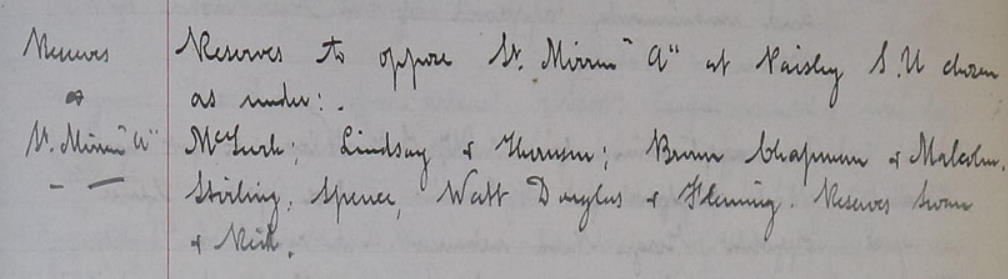 Reserves Reserves to oppose St. Mirren "A" at Paisley S.U chosen
v as under:.
St. Mirren "A" McTurk; Lindsay & Thomson; Brown Chapman & Malcolm.
Stirling, Spence, Watt Douglas & Fleming. Reserves Swan
& Reid.